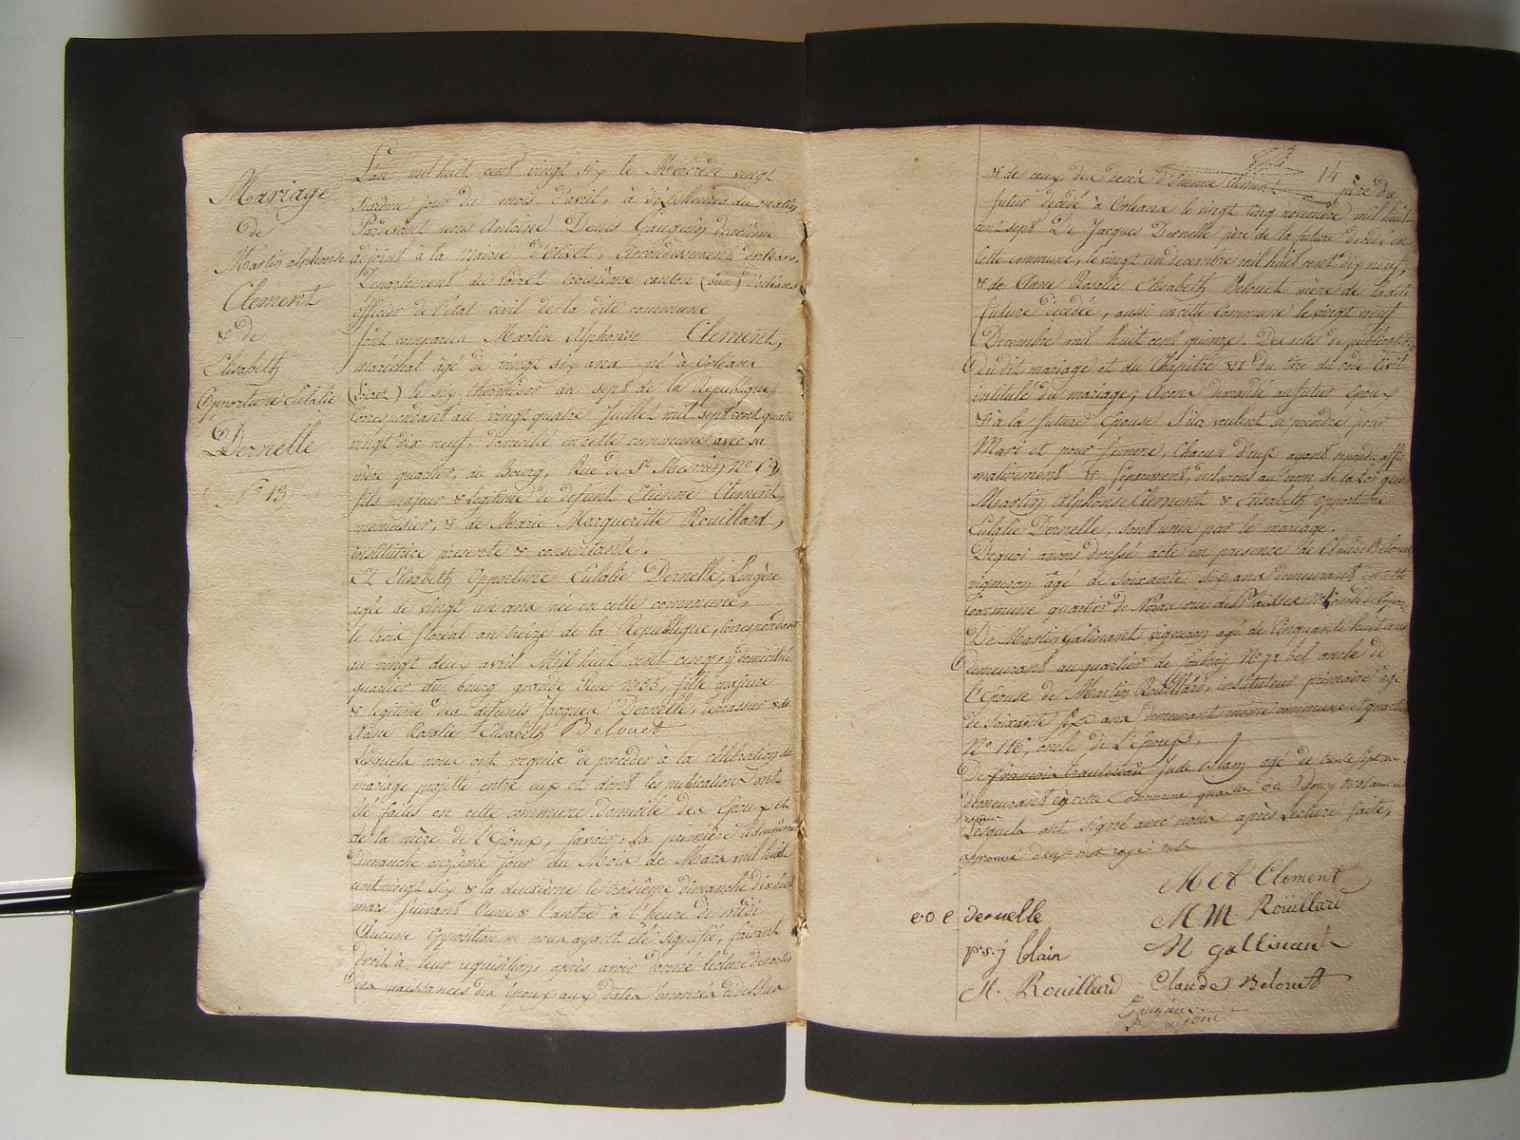 Mariage
de
Martin alphonse
Clement
& de
Elisabeth
Opportune Eulalie
Dernelle
N° 13
L'an mil huit cent vingt six le Mercredi vingt
sixième jour du mois d'avril, à dix heures du matin,
Pardevant nous Antoine Denis Gauguin deuxième
adjoint à la Mairie d'Olivet, Arrondissement d'orléans,
Département du Loiret troisième canton (Sud) d'orléans
officier de l'état civil de la dite commune
sont comparus Martin Alphonse Clement,
maréchal âgé de vingt six ans né à Orléans
(Loiret) le six thermidor an sept de la République,
correspondant au vingt quatre Juillet mil sept cent quatre
vingt dix neuf, domicilié en cette commune avec sa
mère quartier du bourg, Rue de St Mesmin, N°
fils majeur & légitime de defunt Etienne Clement,
menuisier, & de Marie Margueritte Rouillard,
institutrice présente & consentante.
Et Elisabeth Opportune Eulalie Dernelle, Lingère
agée de vingt un ans née en cette commune,
le trois floréal an treize de la République, correspondant
au vingt deux avril Mil huit cent cinq, y domiciliée
quartier du bourg grande Rue N° 55, fille majeure
& légitime des défunts Jacques Dernelle, terrassier & de
Anne Rosalie Elisabeth Belouet
Lesquels nous ont requis de procéder à la célébration du
mariage projetté entre eux et dont les publications ont
été faites en cette commune domicile des Epoux et
de la mère de l'Epoux, savoir, la première le
dimanche du Mois de Mars mil huit
cent vingt six & la deuxième le troisième dimanche dix neuf
mars suivant l'une & l'autre à l'heure de midi
Aucune opposition ne nous ayant été signifiée, faisant
droit à leur requisition, après avoir donné lecture des actes
des naissances des époux aux dates énoncées cidessus
14
& de ceux du décès d'Etienne Clement père du
futur décédé à Orléans le vingt cinq novembre mil huit
cent sept De Jacques Dernelle père de la future décédé en
cette commune, le vingt un decembre mil huit cent dix neuf,
& de Anne Rosalie Elisabeth Belouet mère de ladite
future décédée, aussi en cette Commune le vingt neuf
Décembre mil huit cent quinze, Des actes de publications
du dit mariage et du Chapitre VI du titre du code Civil
intitulé du mariage, Avons demandé au futur époux
& à la future Epouse s'ils veulent se prendre pour
Mari et pour femme, Chacun d'eux ayant répondu affir
mativement & séparement, déclarons au nom de la Loi que
Martin Alphonse Clement & Elisabeth opportune
Eulalie Dernelle, sont unis par le mariage.
Dequoi avons dressé acte en presence de Claude Belouet
vigneron agé de soixante six ans demeurant en cette
commune quartier de
De Martin Galinant vigneron agé de Cinquante huit ans
demeurant au quartier de N° 72 bel oncle de
l'Epouse de Martin Rouillard, instituteur primaire agé
de soixante six ans demeurant même commune
N° 116, oncle de l'Epoux,
De agé de trente sept ans
demeurant en cette Commune quartier
Lesquels ont signé avec nous après Lecture faite,
approuvé deux mots rayés nuls
M A Clement
e o e dernelle M M Roüillard
p.s.j blain M gallinant
M. Rouillard Claude Belouet
Gauguin